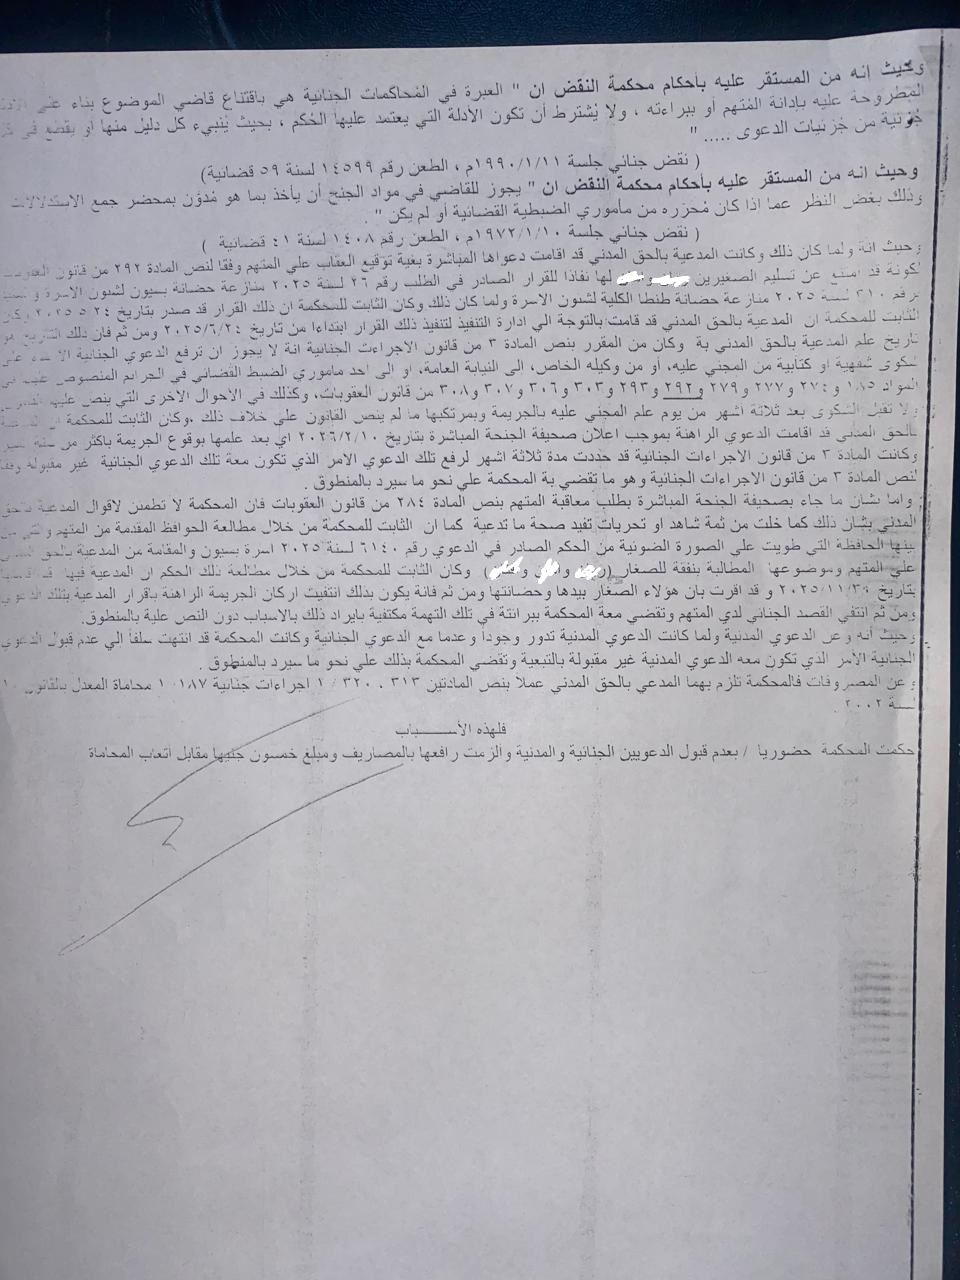 وحيث إنه من المستقر عليه بأحكام محكمة النقض ان " العبرة في المُحاكمات الجنائية هي باقتناع قاضي الموضوع بناء علي الأدلة
المطروحة عليه بإدانة المُتهم أو ببراءته ، ولا يُشترط أن تكون الأدلة التي يعتمد عليها الحُكم ، بحيث يُنبيء كل دليل منها أو يقطع في كل
جُزئية من جُزئيات الدعوى ..... "
( نقض جنائي جلسة ١٩٩٠/١/١١م ، الطعن رقم ١٤٥٩٩ لسنة ٥٩ قضائية)
وحيث انه من المستقر عليه بأحكام محكمة النقض ان " يجوز للقاضي في مواد الجنح أن يأخذ بما هو مُدوَّن بمحضر جمع الاستدلالات
وذلك بغض النظر عما اذا كان مُحرره من مأموري الضبطية القضائية أو لم يكن " .
( نقض جنائي جلسة ١٩٧٢/١/١٠م ، الطعن رقم ١٤٠٨ لسنة ٤١ قضائية )
وحيث انة ولما كان ذلك وكانت المدعية بالحق المدني قد اقامت دعواها المباشرة بغية توقيع العقاب علي المتهم وفقا لنص المادة ٢٩٢ من قانون العقوبات
لكونة قد امتنع عن تسليم الصغيرين لها نفاذا للقرار الصادر في الطلب رقم ٢٦ لسنة ٢٠٢٥ منازعة حضانة بسيون لشئون الاسرة و
برقم ٣١٠ لسنة ٢٠٢٥ منازعة حضانة طنطا الكلية لشئون الاسرة ولما كان ذلك وكان الثابت للمحكمة ان ذلك القرار قد صدر بتاريخ ٢٤ ٥ ٢٠٢٥ وكان
الثابت للمحكمة ان المدعية بالحق المدني قد قامت بالتوجة الي ادارة التنفيذ لتنفيذ ذلك القرار ابتداءا من تاريخ ٢٠٢٥/٦/٢٤ ومن ثم فان ذلك التاريخ هو
تاريخ علم المدعية بالحق المدني بة وكان من المقرر بنص المادة ٣ من قانون الاجراءات الجنائية انة لا يجوز ان ترفع الدعوي الجنائية الا بناء علي
شكوى شفهية او كتابية من المجني عليه، أو من وكيله الخاص، الى النيابة العامة، او الى احد ماموري الضبط القضائي في الجرائم المنصوص عليها في
المواد ١٨٥ و ٢٧٤ و ٢٧٧ و ٢٧٩ و ٢٩٢ و ٢٩٣ و ٣٠٣ و ٣٠٦ و ٣٠٧ و ٣٠٨ من قانون العقوبات، وكذلك في الاحوال الاخرى التي ينص عليها القانون.
ولا تقبل الشكوى بعد ثلاثة اشهر من يوم علم المجني عليه بالجريمة وبمرتكبها ما لم ينص القانون على خلاف ذلك .وكان الثابت للمحكمة ان المدعية
بالحق المدني قد اقامت الدعوي الراهنة بموجب اعلان صحيفة الجنحة المباشرة بتاريخ ٢٠٢٦/٢/١٠ اي بعد علمها بوقوع الجريمة باكثر من ستة اشهر
وكانت المادة ٣ من قانون الاجراءات الجنائية قد حددت مدة ثلاثة اشهر لرفع تلك الدعوي الامر الذي تكون معة تلك الدعوي الجنائية غير مقبولة وفقا
لنص المادة ٣ من قانون الاجراءات الجنائية وهو ما تقضي بة المحكمة علي نحو ما سيرد بالمنطوق .
واما بشان ما جاء بصحيفة الجنحة المباشرة بطلب معاقبة المتهم بنص المادة ٢٨٤ من قانون العقوبات فان المحكمة لا تطمئن لاقوال المدعية بالحق
المدني بشان ذلك كما خلت من ثمة شاهد او تحريات تفيد صحة ما تدعية كما ان الثابت للمحكمة من خلال مطالعة الحوافظ المقدمة من المتهم والتي من
بينها الحافظة التي طويت علي الصورة الضوئية من الحكم الصادر في الدعوي رقم ٦١٤٠ لسنة ٢٠٢٥ اسرة بسيون والمقامة من المدعية بالحق المدني
علي المتهم وموضوعها المطالبة بنفقة للصغار ( و و ) وكان الثابت للمحكمة من خلال مطالعة ذلك الحكم ان المدعية فيها قد اقامتها
بتاريخ ٢٠٢٥/١/٣٠ و قد اقرت بان هؤلاء الصغار بيدها وحضانتها ومن ثم فانة يكون بذلك انتفيت اركان الجريمة الراهنة باقرار المدعية بتلك الدعوي
ومن ثم انتفي القصد الجنائي لدي المتهم وتقضي معة المحكمة ببرائتة في تلك التهمة مكتفية بايراد ذلك بالاسباب دون النص علية بالمنطوق.
وحيث أنه وعن الدعوي المدنية ولما كانت الدعوي المدنية تدور وجوداً وعدما مع الدعوي الجنائية وكانت المحكمة قد انتهت سلفاً الي عدم قبول الدعوي
الجنائية الأمر الذي تكون معه الدعوي المدنية غير مقبولة بالتبعية وتقضي المحكمة بذلك علي نحو ما سيرد بالمنطوق .
وعن المصروفات فالمحكمة تلزم بهما المدعي بالحق المدني عملا بنص المادتين ٣١٣ ، ٣٢٠ / ١ اجراءات جنائية ١٨٧ / ١ محاماة المعدل بالقانون ١٠
لسنة ٢٠٠٢ .
فلهذه الأســـــباب
حكمت المحكمة حضوريا / بعدم قبول الدعويين الجنائية والمدنية وألزمت رافعها بالمصاريف ومبلغ خمسون جنيها مقابل أتعاب المحاماة